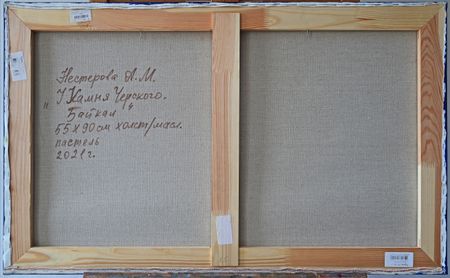 Нестерова А.М.
"У Камня Черского.
Байкал"
55х90см холст/масл.
пастель
2021г.